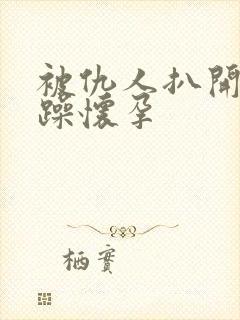 被仇人扒開
躁懷孕
栖實